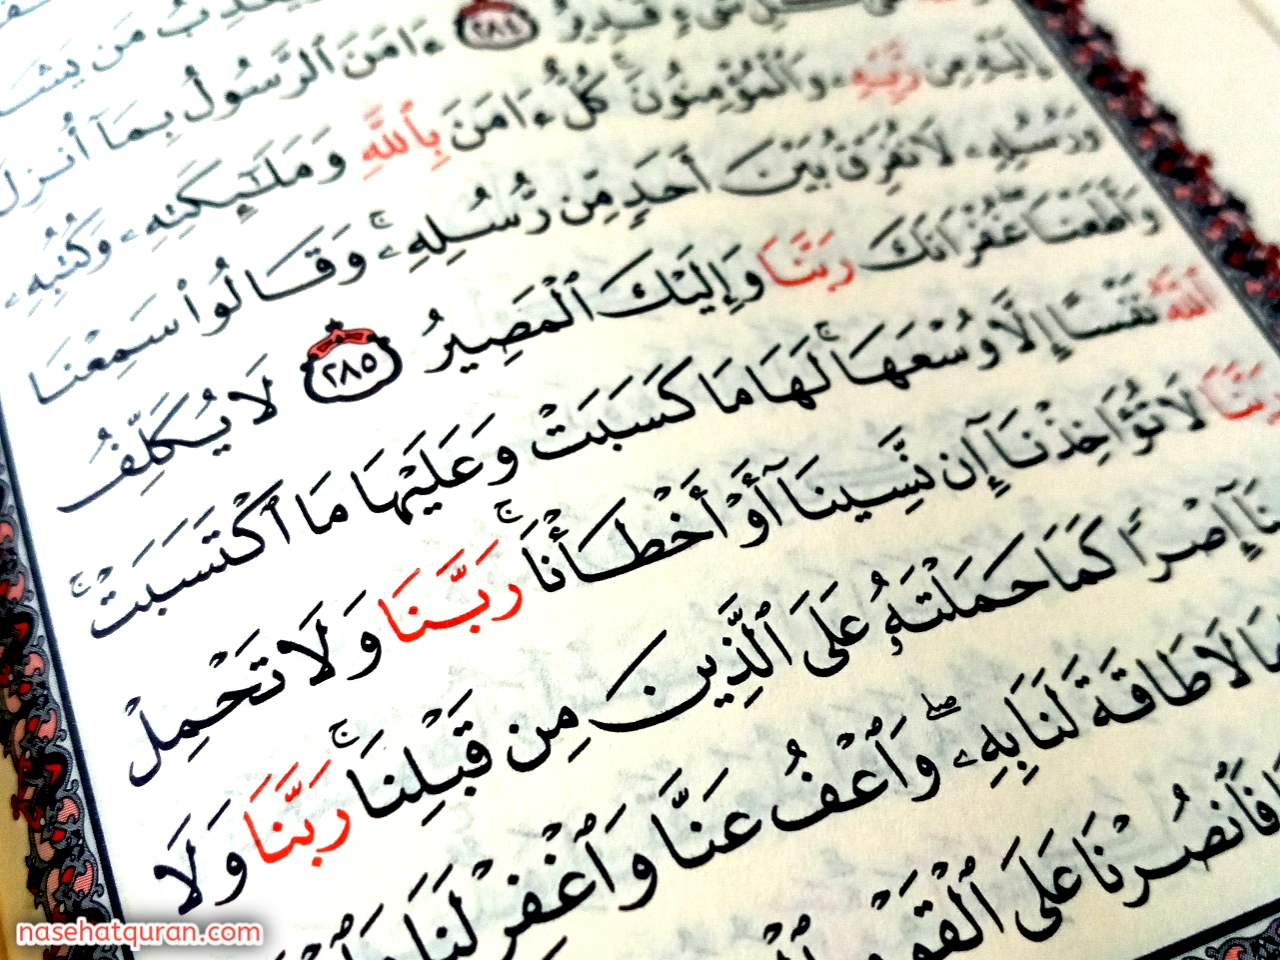 يُعَذِّبُ مَن يَشَ
كُلِّ شَىْءٍ قَدِيرٌ ٢٨٤ ءَامَنَ ٱلرَّسُولُ بِمَآ أُنزِلَ
إِلَيْهِ مِن رَّبِّهِۦ وَٱلْمُؤْمِنُونَ ۚ كُلٌّ ءَامَنَ بِٱللَّهِ وَمَلَـٰٓئِكَتِهِۦ وَكُتُبِهِۦ
وَرُسُلِهِۦ لَا نُفَرِّقُ بَيْنَ أَحَدٍ مِّن رُّسُلِهِۦ ۚ وَقَالُوا۟ سَمِعْنَا
وَأَطَعْنَا ۖ غُفْرَانَكَ رَبَّنَا وَإِلَيْكَ ٱلْمَصِيرُ ٢٨٥ لَا يُكَلِّفُ
ٱللَّهُ نَفْسًا إِلَّا وُسْعَهَا ۚ لَهَا مَا كَسَبَتْ وَعَلَيْهَا مَا ٱكْتَسَبَتْ ۗ
رَبَّنَا لَا تُؤَاخِذْنَآ إِن نَّسِينَآ أَوْ أَخْطَأْنَا ۚ رَبَّنَا وَلَا تَحْمِلْ
نَآ إِصْرًا كَمَا حَمَلْتَهُۥ عَلَى ٱلَّذِينَ مِن قَبْلِنَا ۚ رَبَّنَا وَلَا
مَا لَا طَاقَةَ لَنَا بِهِۦ ۖ وَٱعْفُ عَنَّا وَٱغْفِرْ لَنَا
فَٱنصُرْنَا عَلَى ٱلْقَوْمِ
nasehatquran.com